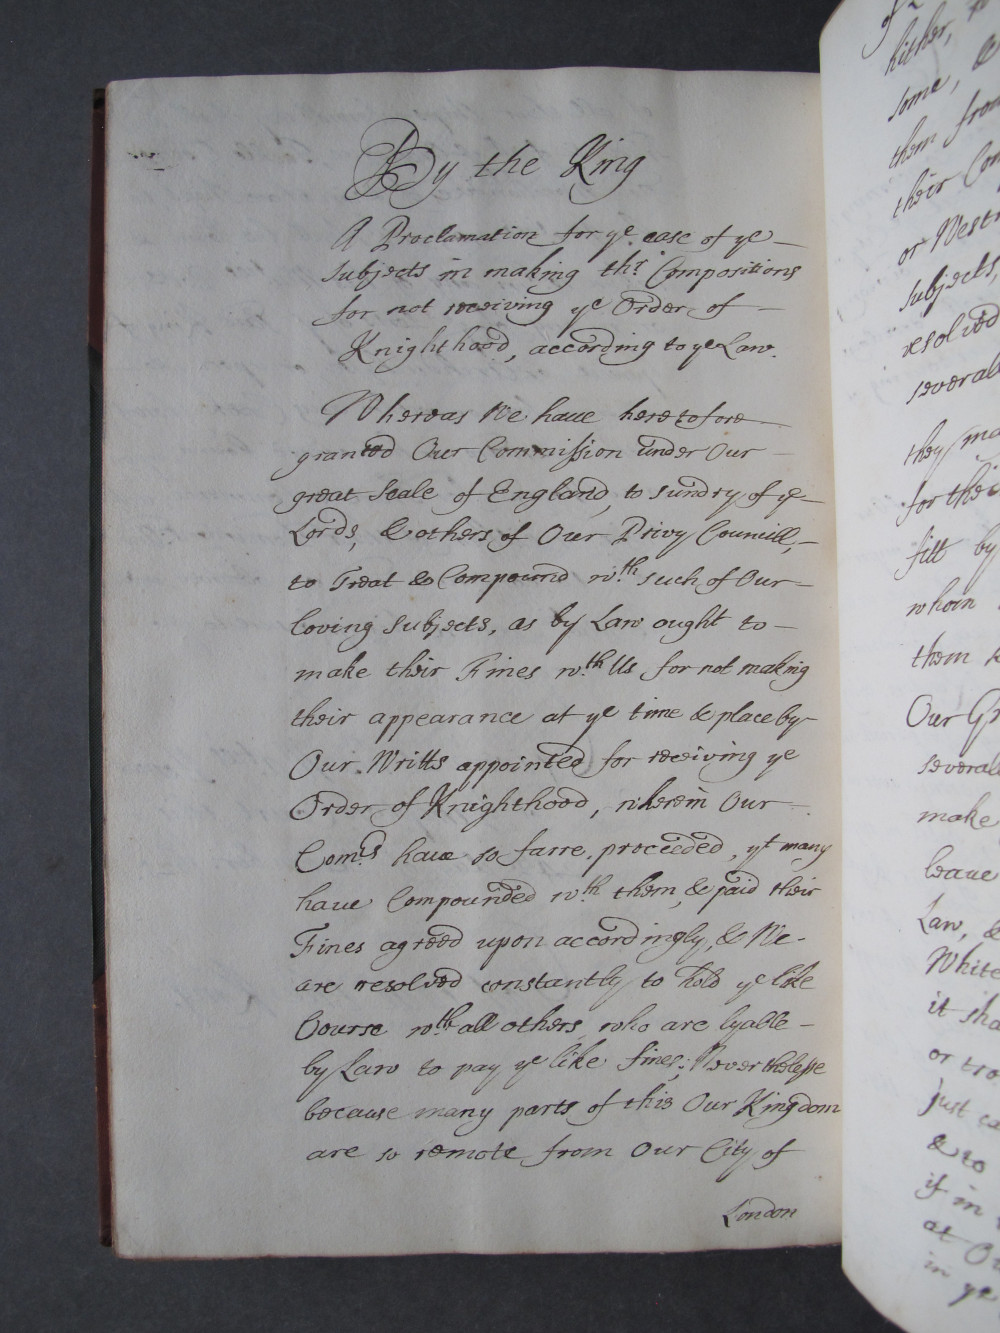 By the King
A Proclamation for ye ease of ye
subjects in making thr Compositions
for not receiving ye Order of
Knighthood, according to ye Law.
Whereas We have heretofore
granted Our Commission under Our
great Seale of England, to sundry of ye
Lords, & others of Our Privy Councill,
to Treat & Compound wth such of Our
loving Subjects, as by Law ought to
make their Fines wth Us for not making
their appearance at ye time & place by
Our Writts appointed for receiving ye
Order of Knighthood, wherein Our
Comrs have so farre proceeded, yt many
have Compounded wth them, & paid their
Fines agreed upon accordingly, & We
are resolved constantly to hold ye like
Course wth all others, who are lyable
by Law to pay ye like fines; Neverthelesse
because many parts of this Our Kingdom
are so remote from Our City of
London
hither,
some, &
them from
their Com
or Westm
subjects,
resolved
severall
they ma
for the
fitt by
whom
them
Our Gr
severall
make
leave
Law, &
White
it sha
or tro
just ca
& to
if in
at Ou
in ye